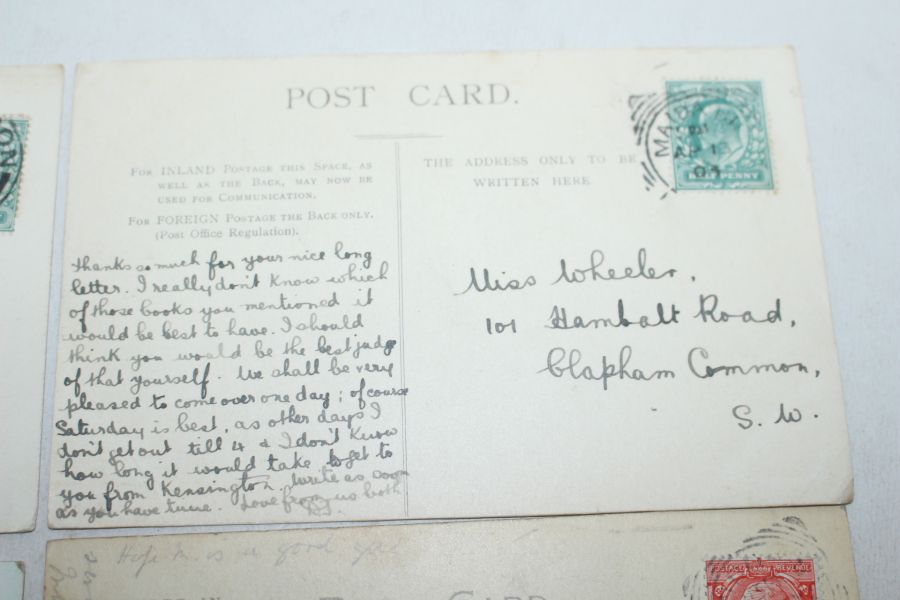 POST CARD.
FOR INLAND POSTAGE THIS SPACE, AS
WELL AS THE BACK, MAY NOW BE
USED FOR COMMUNICATION.
FOR FOREIGN POSTAGE THE BACK ONLY.
(Post Office Regulation).
THE ADDRESS ONLY TO BE
WRITTEN HERE
HALFPENNY
thanks so much for your nice long
letter. I really don't know which
of those books you mentioned it
would be best to have. I should
think you would be the best judge
of that yourself. We shall be very
pleased to come over one day; of course
Saturday is best, as other days I
don't get out till 4 & I don't know
how long it would take to get to
you from Kensington. Write as soon
as you have time. Love from us both
Miss Wheeler,
101 Hambalt Road,
Clapham Common,
S. W.
ON
Hope is a good
POSTAGE REVENUE
CARD